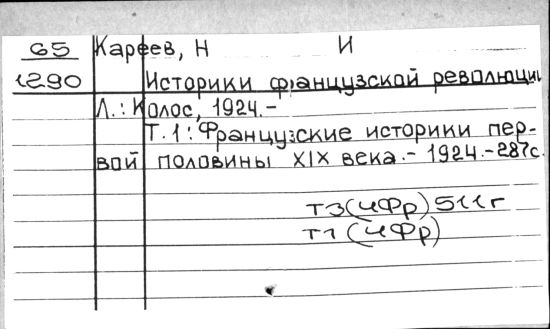 65 Кареев, Н И
1290 Историки французской революции
Л.: Колос, 1924.-
Т.1: Французские историки пер-
вой половины XIX века.- 1924.-287с.
Т3(4Фр) 511г
Т1 (4Фр)